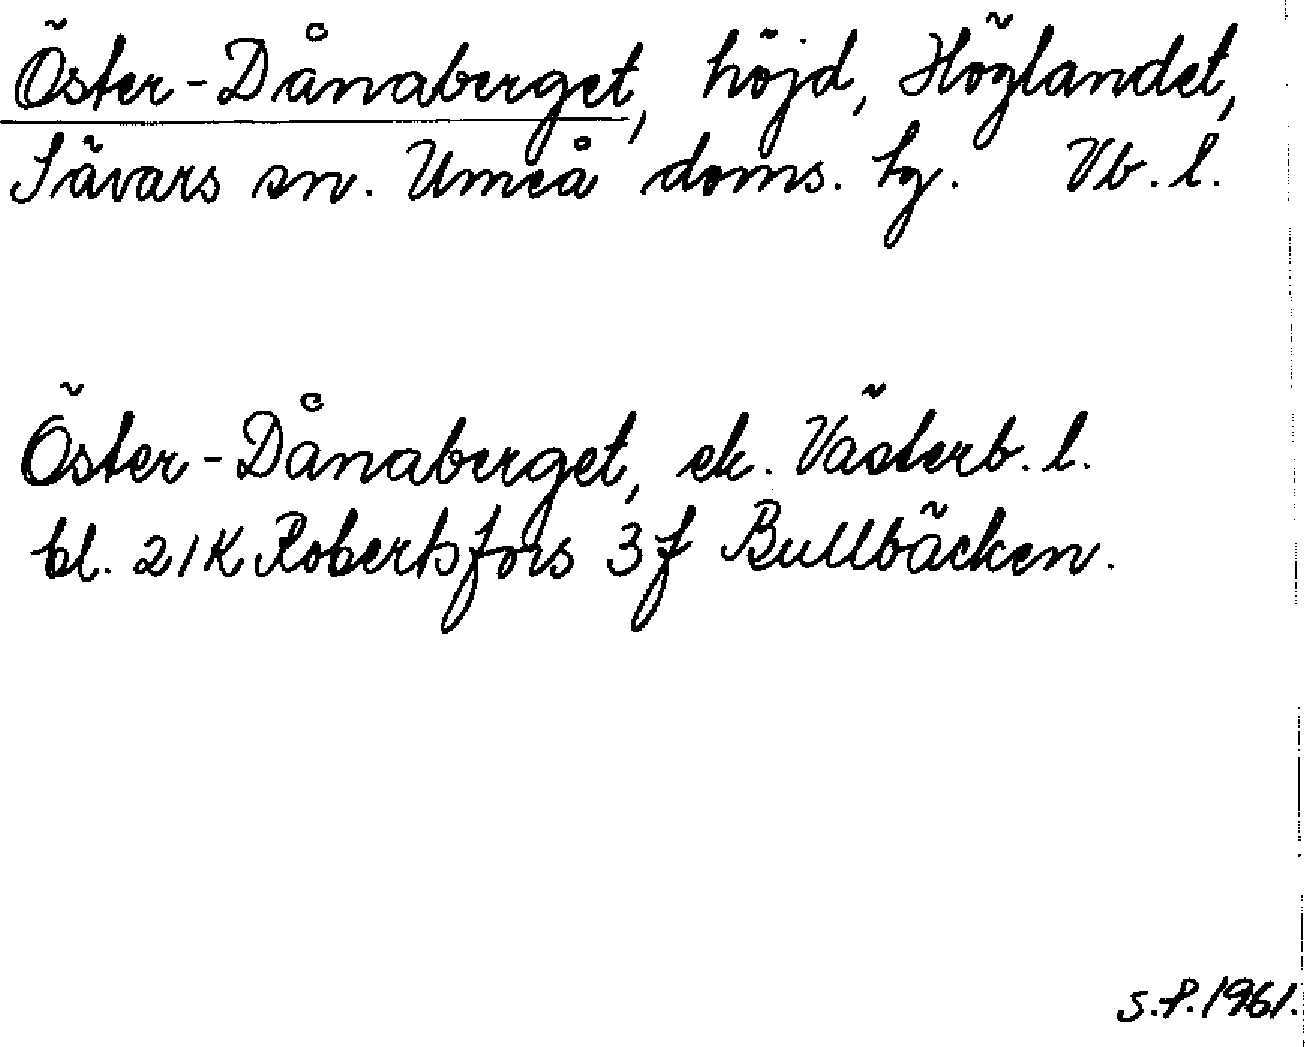 Öster-Dånaberget, höjd, Höglandet,
Sävars sn. Umeå doms. tg. Vb. l.
Öster-Dånaberget, ek. Västerb. l.
bl. 21K Robertsfors 3f Bullbäcken.
S.P. 1961.